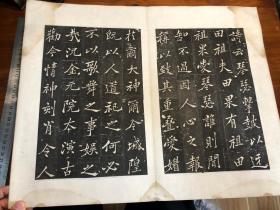 詩云琴瑟擊鼓以迓
田祖夫田果有祖田
祖果愛琴瑟誰則聞
知不過因人心之報
稱以致其重疊愛媚
於爾大神爾今城隍
既以人道祀之何必
不以歌舞之事娛之
哉況金元院本演古
勸今情神刻肖令人